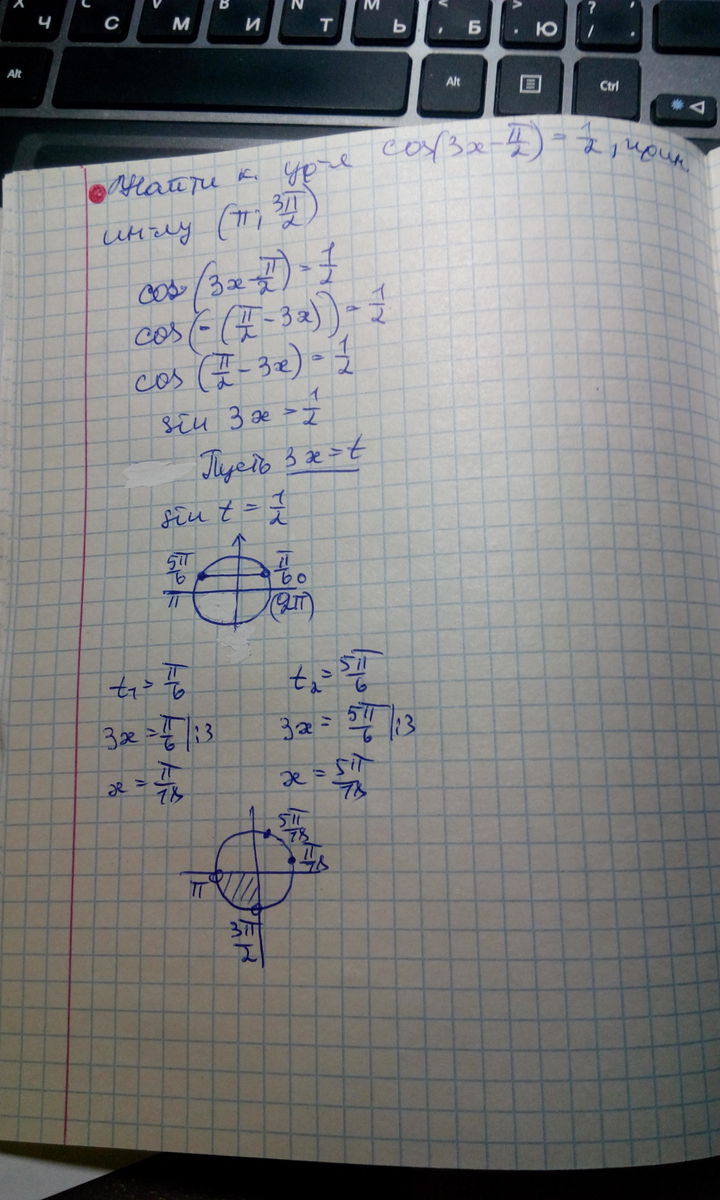 Х Ч
С С
V М
В И
N Т
М Ь
< , Б
> . Ю
? / .
Alt
Alt
Ctrl
Найти к. ур-я cos(3x-π/2)=1/2, прин.
ин-лу (π; 3π/2)
cos(3x-π/2)=1/2
cos(-(π/2-3x))=1/2
cos(π/2-3x)=1/2
sin 3x=1/2
Пусть 3x=t
sin t=1/2
5π/6 π/6
π 0
(2π)
t₁=π/6 t₂=5π/6
3x=π/6 |:3 3x=5π/6 |:3
x=π/18 x=5π/18
5π/18
π/18
π
3π/2